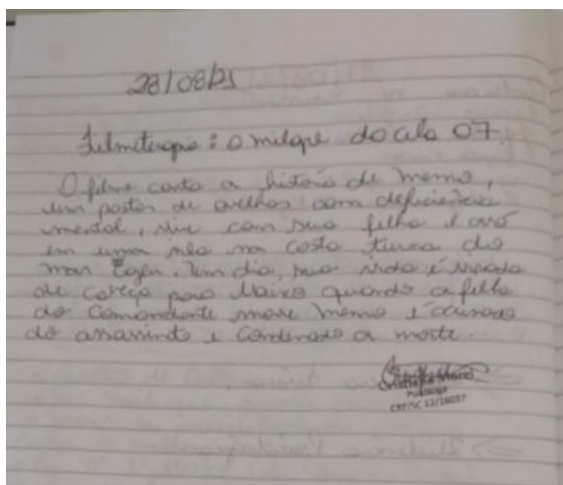 28/08/25
Filmeterapia: o milagre da cela 07.
O filme conta a história de memo,
um pastor de ovelhas com deficiência
mental, vive com sua filha e avó
em uma na costa turca do
mar Egeu. Um dia, sua vida é virada
de cabeça para baixo quando a filha
do comandante morre memo é acusado
do assassinato e condenado a morte.
Cristiane Morel
Psicóloga
CRP/SC 12/16057